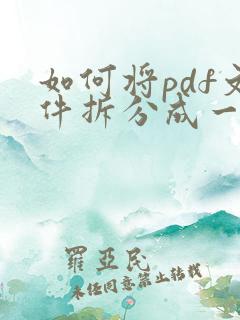 如何将pdf文
件拆分成一
羅亞民
未经同意禁止转载